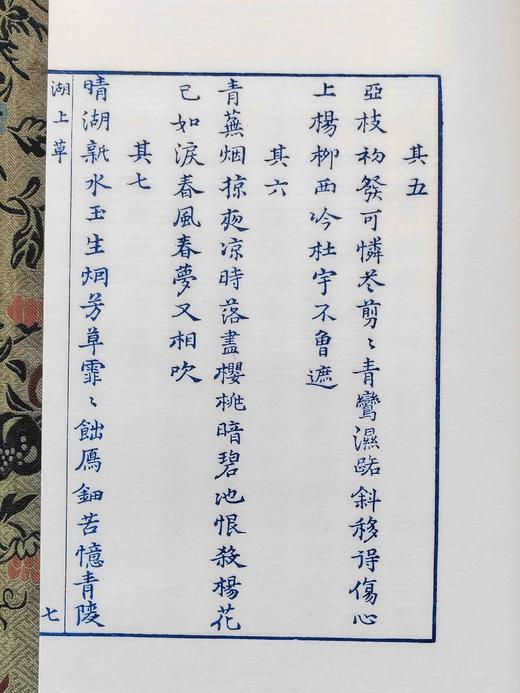 其五
亞枝初發可憐苓剪〻青鸞濕路斜移得傷心
上楊柳西吟杜宇不曾遮
其六
青蕪烟掠夜凉時落盡櫻桃暗碧池恨殺楊花
已如淚春風春夢又相吹
其七
晴湖新水玉生烟芳草霏〻飳雁鈿苦憶青陵
湖上草
七